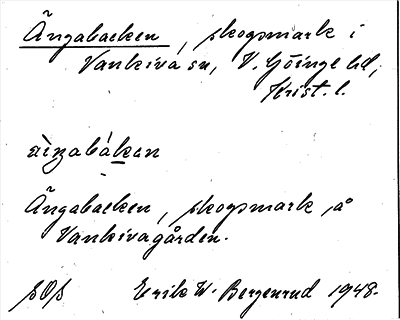 Ängabacken, skogsmark i
Vankiva sn, V. Göinge hd,
Krist. l.
Ängabacken, skogsmark å
Vankivagården.
SOS Erik W. Bergenrud 1948.